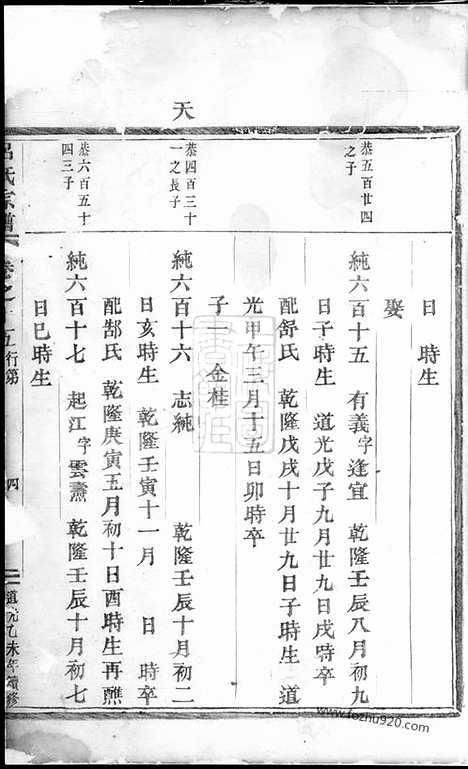 天
日　時生
娶
恭五百廿四之子
純六百十五　有義字逢宜　乾隆壬辰八月初九
日子時生　道光戊子九月廿九日戌時卒
配舒氏　乾隆戊戌十月廿九日子時生　道
光甲午三月十五日卯時卒
子一　金桂
恭四百三十一之長子
純六百十六　志純　乾隆壬辰十月初二
日亥時生　乾隆壬寅十一月　日　時卒
配郜氏　乾隆庚寅五月初十日酉時生再醮
恭六百五十四三子
純六百十七　起江字雲燾　乾隆壬辰十月初七
日巳時生
呂氏宗譜　卷之　五行第　四　道光乙未年續修
www.fozhu920.com